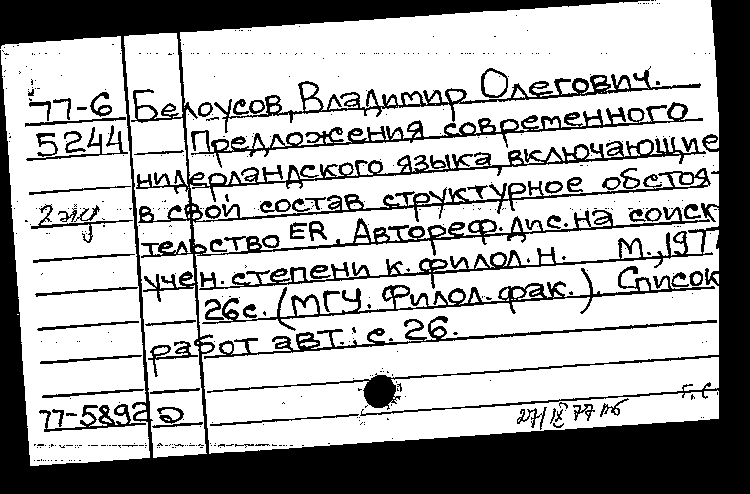 77-6 Белоусов, Владимир Олегович.
5244 Предложения современного
нидерландского языка, включающие
2 экз в свой состав структурное обстоя-
тельство ER. Автореф. дис. на соиск
учен. степени к. филол. н. М., 1977
26с. (МГУ. Филол. фак.). Список
работ авт.: с. 26.
77-5892
27/IX 77